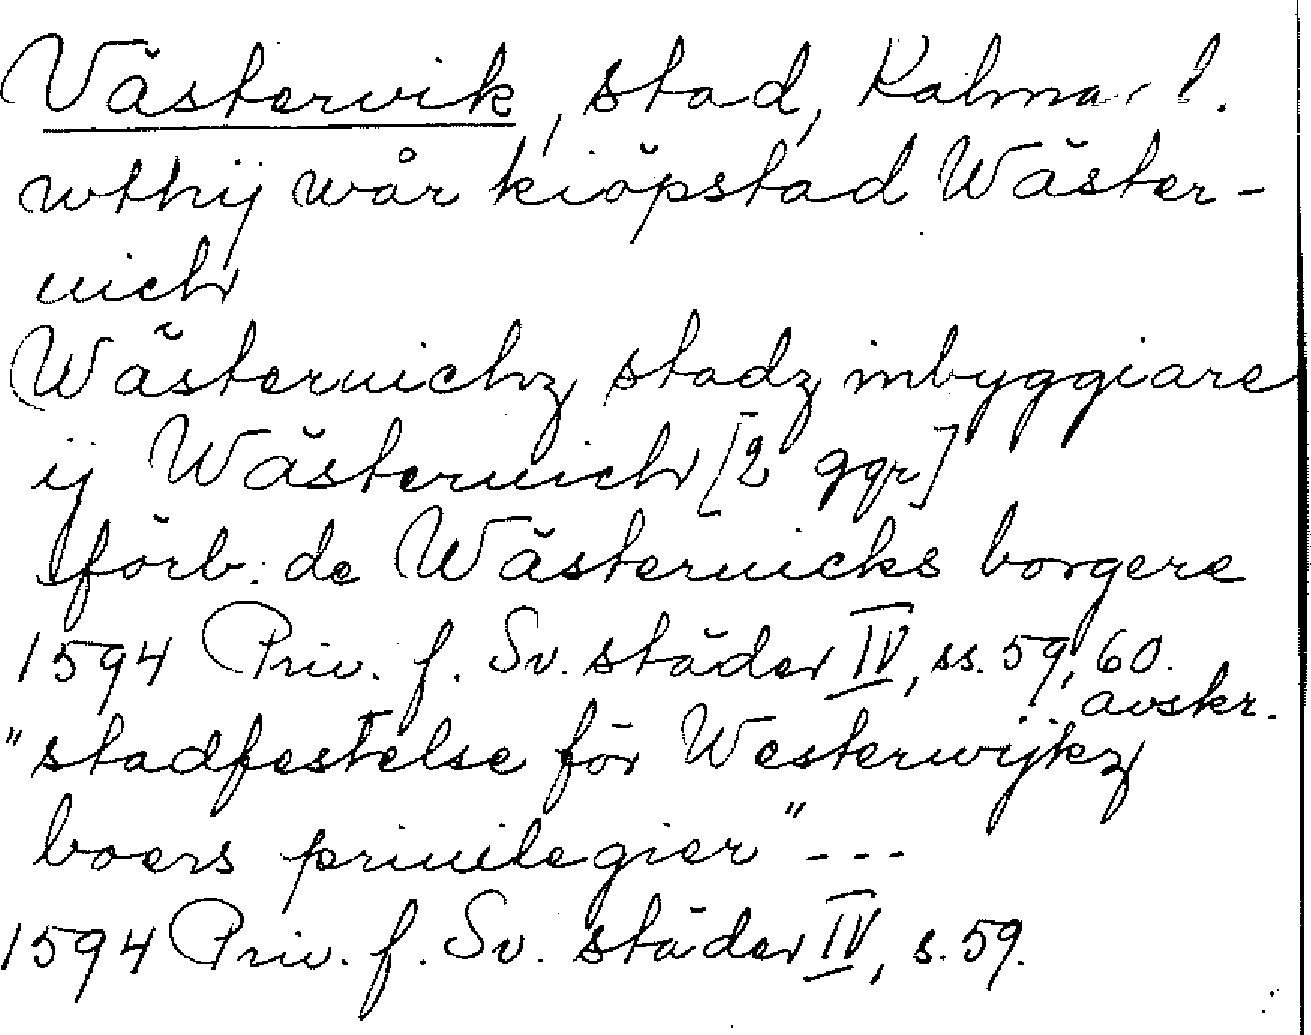 Västervik, stad, Kalmar l.
wthij wår kiöpstad Wäster-
uich
Wästeruichz stadz inbyggiare
ij Wästeruich [2 ggr]
förb. de Wästeruicks borgere
1594 Priv. f. Sv. städer IV, ss. 59, 60.
avskr.
"stadfestelse för Westerwijkz
boers priuilegier" - - -
1594 Priv. f. Sv. städer IV, s. 59.